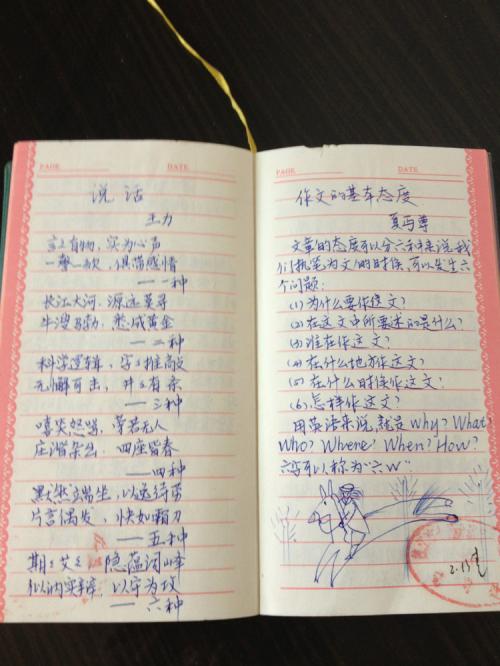 PAGE DATE
说话
王力
言之有物，实为心声
一謦一欬，俱带感情
——一种
长江大河，源远莫寻
牛溲马勃，悉成黄金
——二种
科学逻辑，字字推敲
无懈可击，井井有条
——三种
嘻笑怒骂，旁若无人
庄谐杂出，四座皆春
——四种
默然端坐，以逸待劳
片言偶发，快如霜刀
——五种
期期艾艾 隐蕴词峰
似讷实辩，以守为攻
——六种
PAGE DATE
作文的基本态度
夏丏尊
文章的态度可以分六种来说，我
们执笔为文的时候，可以发生六
个问题：
(1) 为什么要作这文？
(2) 在这文中所要述的是什么？
(3) 谁在作这文？
(4) 在什么地方作这文？
(5) 在什么时候作这文？
(6) 怎样作这文？
用英语来说，就是Why? What?
Who? Where? When? How?
六字可以称为“六W”